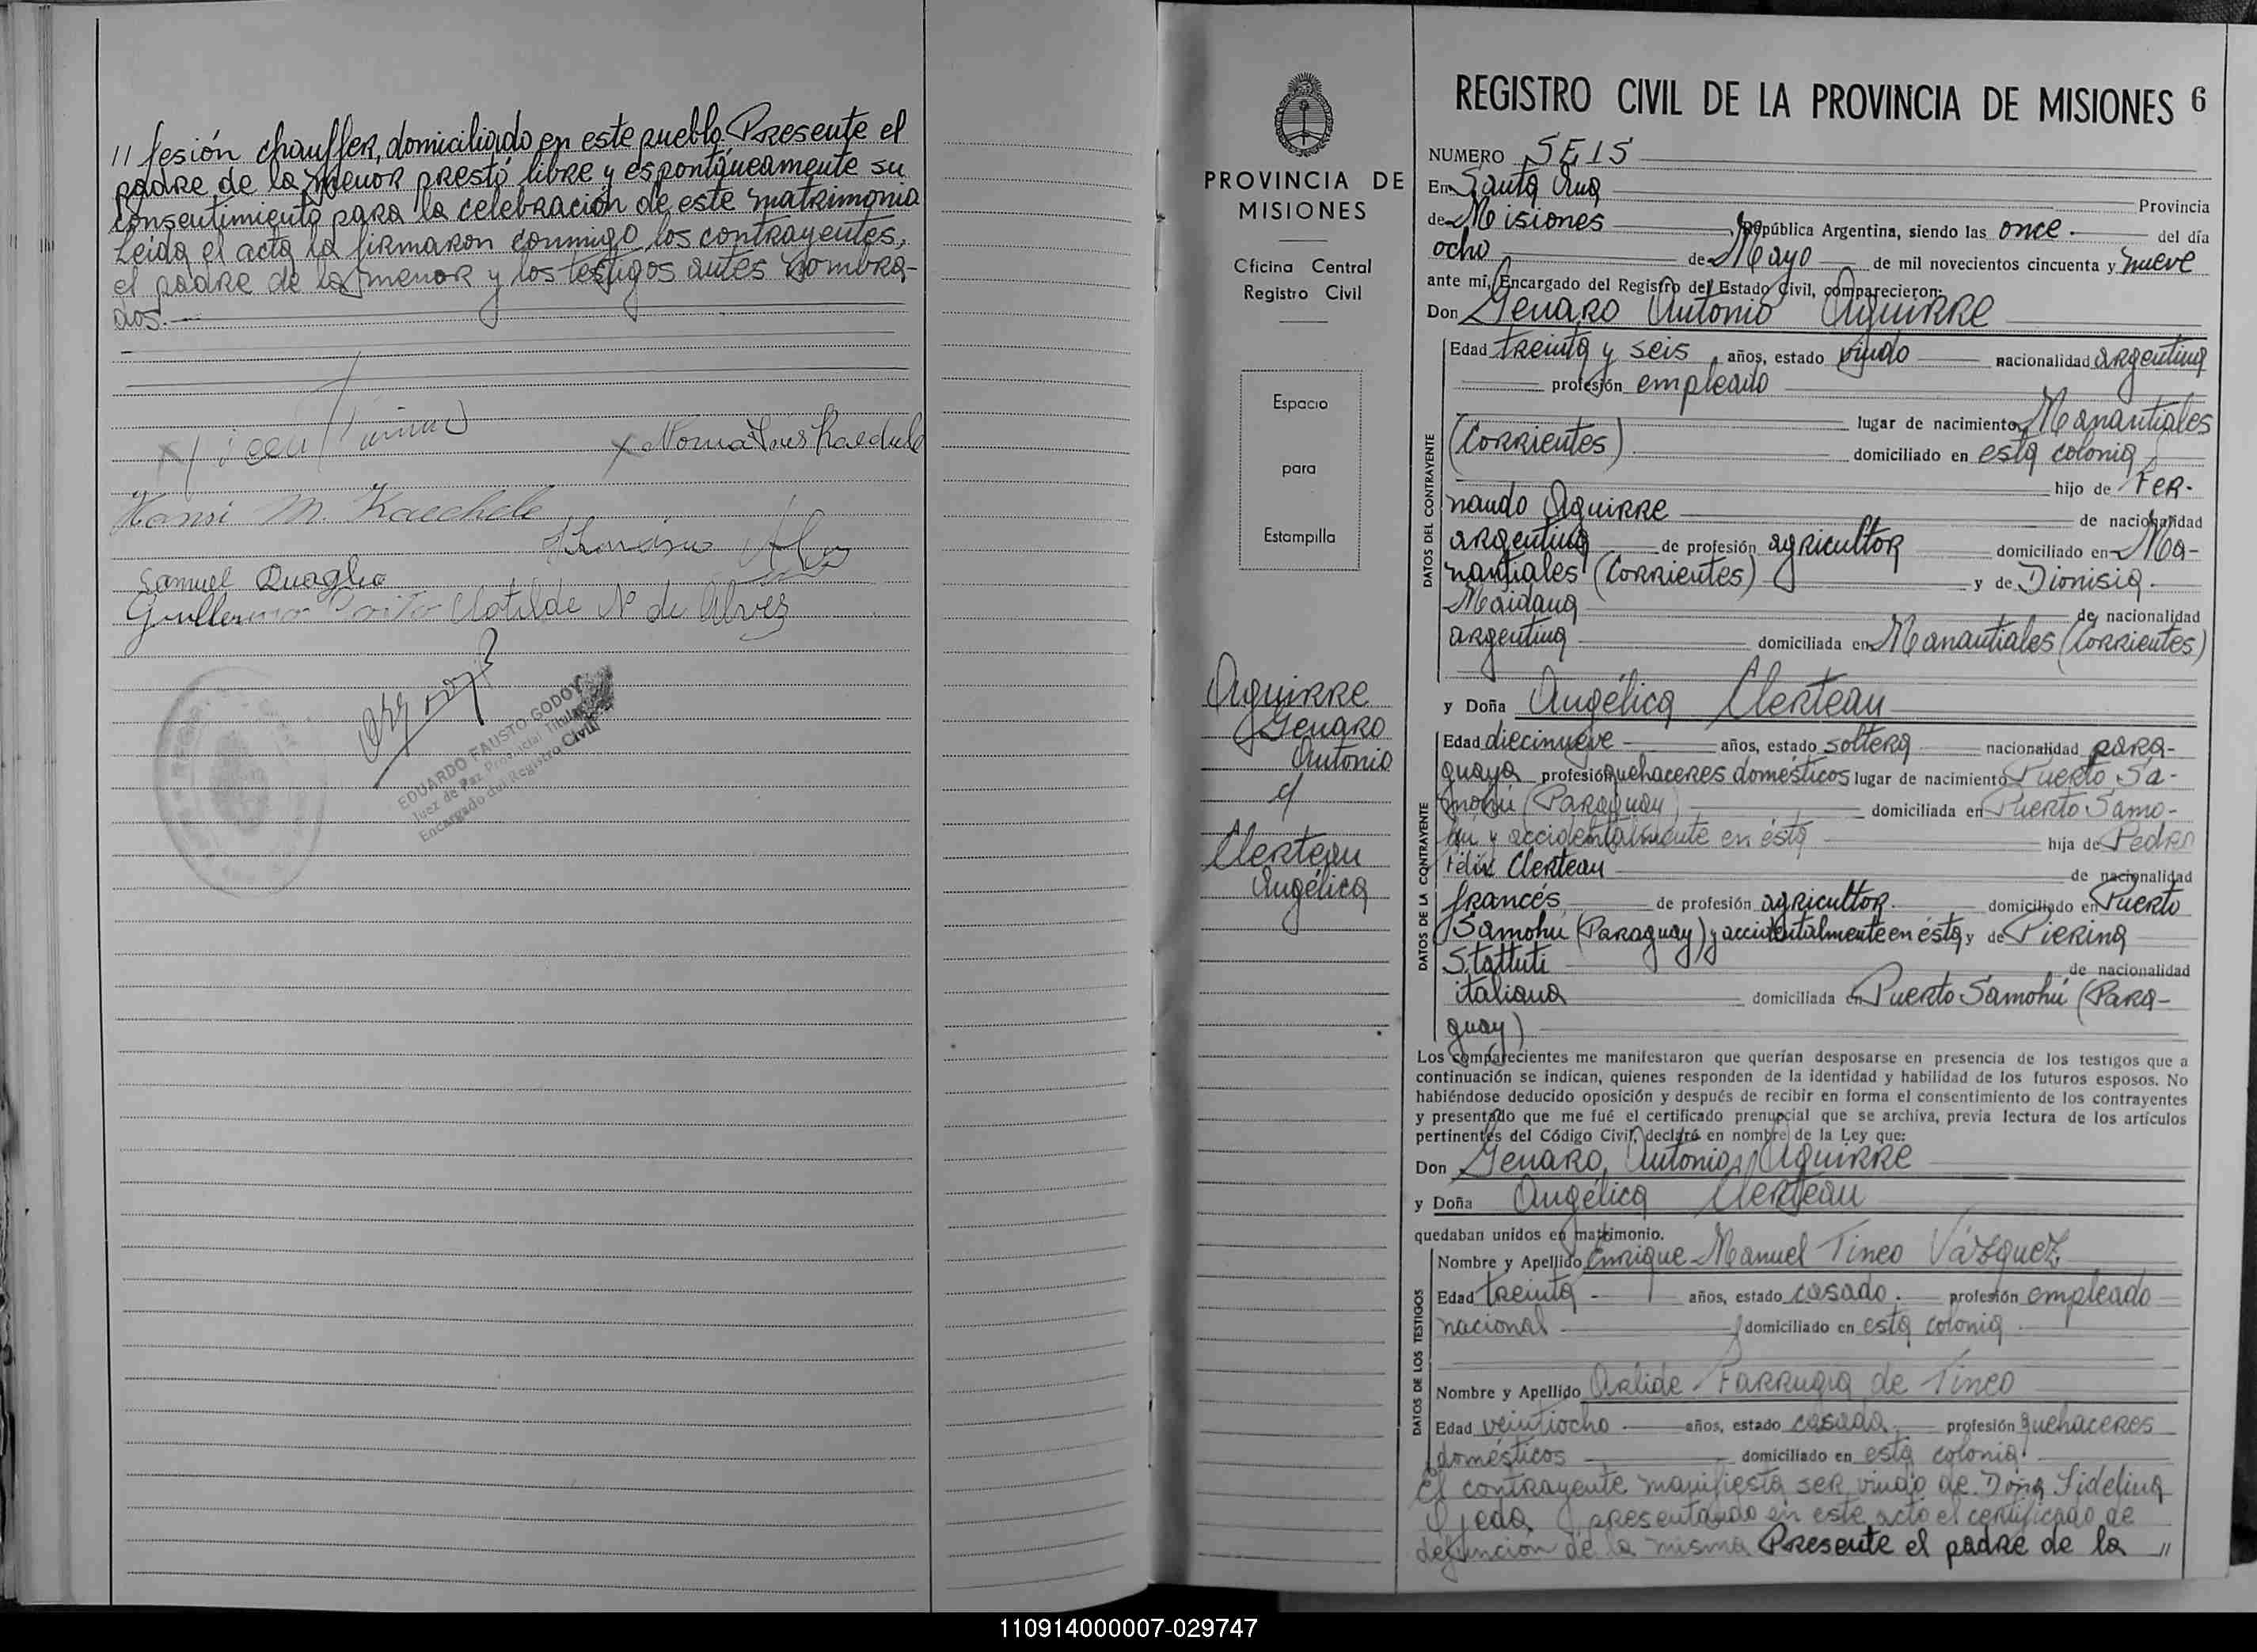 // fesión chauffer, domiciliado en este pueblo. Presente el
padre de la menor prestó libre y espontáneamente su
consentimiento para la celebración de este matrimonio
Leida el acta la firmaron conmigo los contrayentes,
el padre de la menor y los testigos antes nombra-
dos.—
Hansi M. Kaechele
Samuel Quaglio
Guillermo Clotilde N de Alvez
EDUARDO FAUSTO GODOY
Juez de Paz Provincial Titular
Encargado del Registro Civil
PROVINCIA DE
MISIONES
Oficina Central
Registro Civil
Espacio
para
Estampilla
Aguirre
Genaro
Antonio
y
Clerteau
Angélica
REGISTRO CIVIL DE LA PROVINCIA DE MISIONES 6
NUMERO SEIS
En Santa Ana
Provincia
de Misiones , República Argentina, siendo las once del día
ocho de Mayo de mil novecientos cincuenta y nueve
ante mí, Encargado del Registro del Estado Civil, comparecieron:
Don Genaro Antonio Aguirre
DATOS DEL CONTRAYENTE
Edad treinta y seis , años, estado viudo nacionalidad argentina
profesión empleado
lugar de nacimiento Manantiales
(Corrientes) domiciliado en esta colonia
hijo de Fer-
nando Aguirre de nacionalidad
argentina de profesión agricultor domiciliado en Ma-
nantiales (Corrientes) y de Dionisia
Maidana de nacionalidad
argentina domiciliada en Manantiales (Corrientes)
y Doña Angélica Clerteau
DATOS DE LA CONTRAYENTE
Edad diecinueve años, estado soltera nacionalidad para-
guaya profesión quehaceres domésticos lugar de nacimiento Puerto Sa-
mohú (Paraguay) domiciliada en Puerto Samo-
hú y accidentalmente en ésta hija de Pedro
Félix Clerteau de nacionalidad
francés de profesión agricultor domiciliado en Puerto
Samohú (Paraguay) y accidentalmente en ésta y de Pierina
Stattuti de nacionalidad
italiana domiciliada en Puerto Samohú (Para-
guay)
Los comparecientes me manifestaron que querían desposarse en presencia de los testigos que a
continuación se indican, quienes responden de la identidad y habilidad de los futuros esposos. No
habiéndose deducido oposición y después de recibir en forma el consentimiento de los contrayentes
y presentado que me fué el certificado prenupcial que se archiva, previa lectura de los artículos
pertinentes del Código Civil, declaró en nombre de la Ley que:
Don Genaro Antonio Aguirre
y Doña Angélica Clerteau
quedaban unidos en matrimonio.
DATOS DE LOS TESTIGOS
Nombre y Apellido Enrique Manuel Tineo Vázquez
Edad treinta años, estado casado profesión empleado
nacional domiciliado en esta colonia
Nombre y Apellido Arlide Farrugia de Tineo
Edad veintiocho años, estado casada profesión quehaceres
domésticos domiciliado en esta colonia.
El contrayente manifiesta ser viudo de Doña Fidelina
Ojeda, presentando en este acto el certificado de
defunción de la misma Presente el padre de la //
110914000007-029747